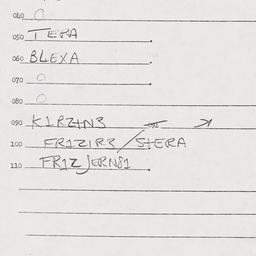 040 O
050 TERA
060 BLEXA
070 O
080 O
090 K1RZ+N3
100 FR1ZIR3/STERA
110 FR1Z JERN81